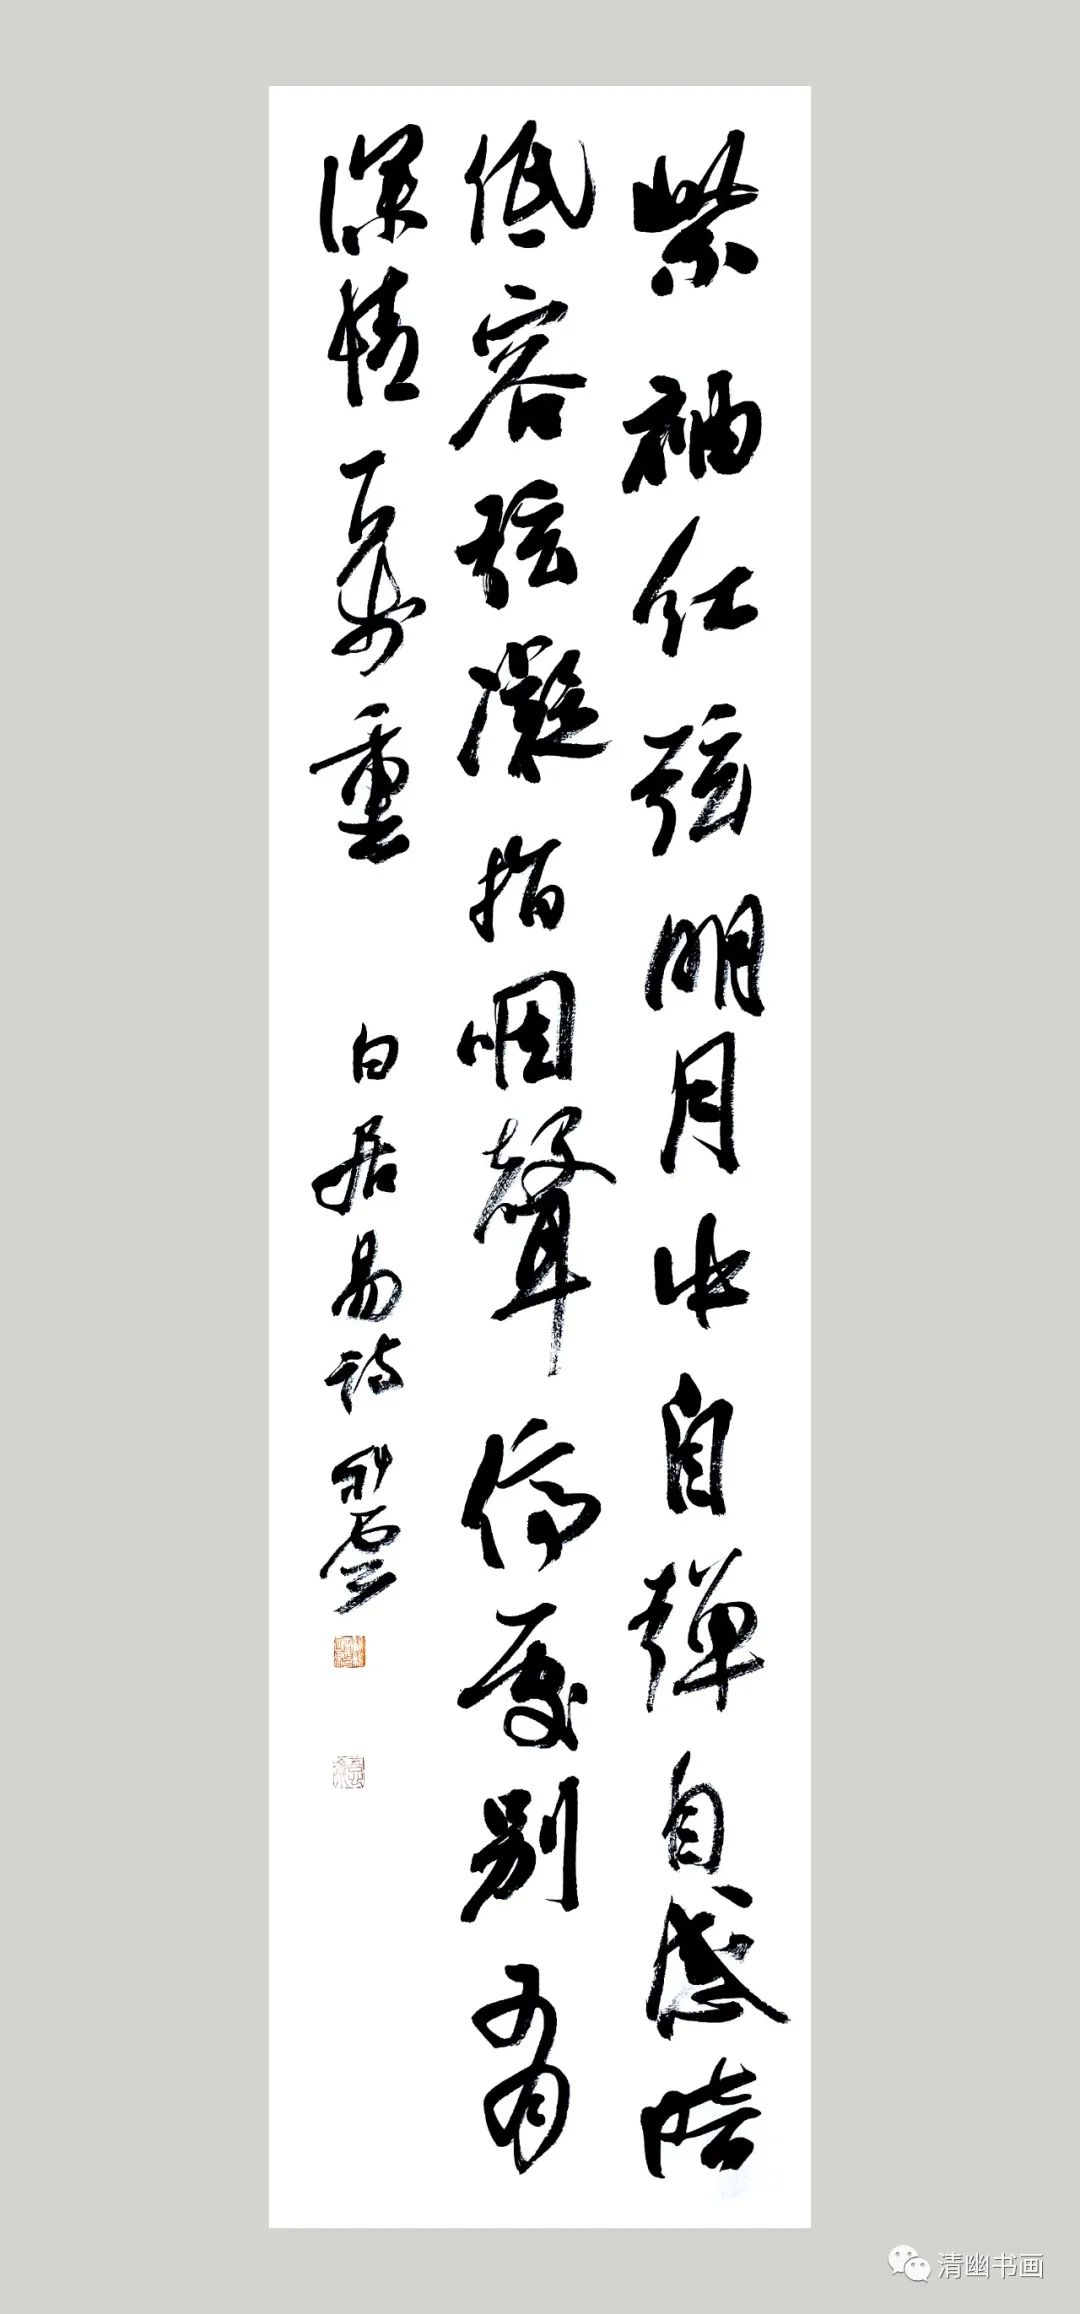 紫袖红弦明月中自弹自感暗
低容弦凝指咽聲停处别有
深情一万重
白居易诗
清幽书画